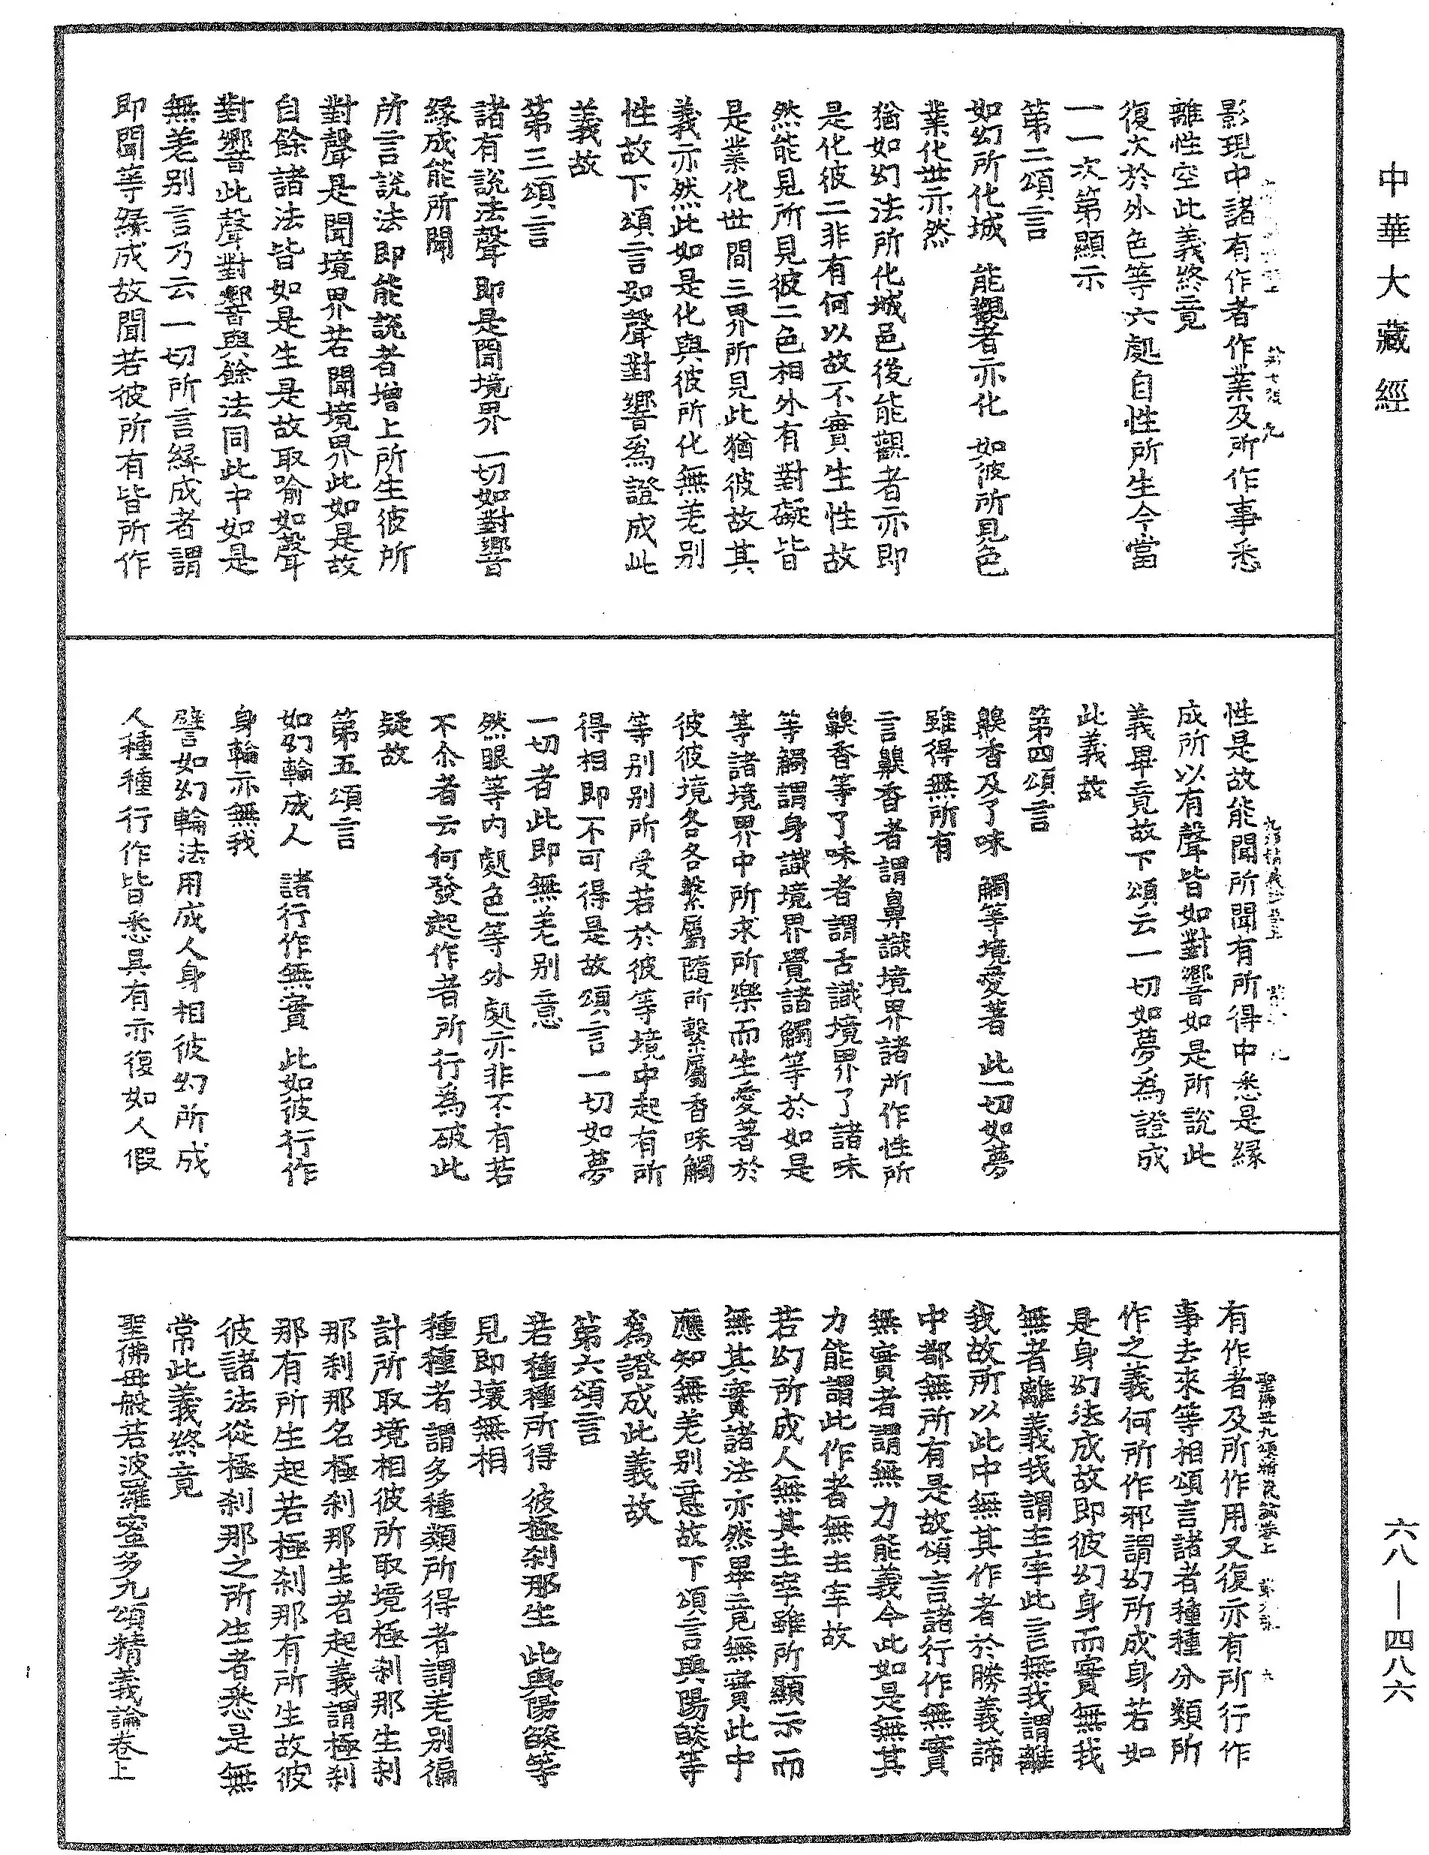 中華大藏經
影現中諸有作者作業及所作事悉
離性空此義終竟
復次於外色等六處自性所生今當
一一次第顯示
第二頌言
如幻所化城　能觀者亦化　如彼所見色
業化世亦然
猶如幻法所化城邑後能觀者亦即
是化彼二非有何以故不實生性故
然能見所見彼二色相外有對礙皆
是業化世間三界所見此猶彼故其
義亦然此如是化與彼所化無差別
性故下頌言如聲對響為證成此
義故
第三頌言
諸有說法聲　即是聞境界　一切如對響
緣成能所聞
所言說法即能說者增上所生彼所
對聲是聞境界若聞境界此如是故
自餘諸法皆如是生是故取喻如聲
對響此聲對響與餘法同此中如是
無差別言乃云一切所言緣成者謂
即聞等緣成故聞若彼所有皆所作
性是故能聞所聞有所得中悉是緣
成所以有聲皆如對響如是所說此
義畢竟故下頌云一切如夢為證成
此義故
第四頌言
齅香及了味　觸等境愛著　此一切如夢
雖得無所有
言齅香者謂鼻識境界諸所作性所
齅香等了味者謂舌識境界了諸味
等觸謂身識境界覺諸觸等於如是
等諸境界中所求所樂而生愛著於
彼彼境各各繫屬隨所繫屬香味觸
等別別所受若於彼等境中起有所
得相即不可得是故頌言一切如夢
一切者此即無差別意
然眼等內處色等外處亦非不有若
不尒者云何發起作者所行為破此
疑故
第五頌言
如幻輪成人　諸行作無實　此如彼行作
身輪亦無我
譬如幻輪法用成人身相彼幻所成
人種種行作皆悉具有亦復如人假
有作者及所作用又復亦有所行作
事去來等相頌言諸者種種分類所
作之義何所作邪謂幻所成身若如
是身幻法成故即彼幻身而實無我
無者離義我謂主宰此言無我謂離
我故所以此中無其作者於勝義諦
中都無所有是故頌言諸行作無實
無實者謂無力能義今此如是無其
力能謂此作者無主宰故
若幻所成人無其主宰雖所顯示而
無其實諸法亦然畢竟無實此中
應知無差別意故下頌言與陽燄等
為證成此義故
第六頌言
若種種所得　彼極剎那生　此與陽燄等
見即壞無相
種種者謂多種類所得者謂差別徧
計所取境相彼所取境極剎那生剎
那剎那名極剎那生者起義謂極剎
那有所生起若極剎那有所生故彼
彼諸法從極剎那之所生者悉是無
常此義終竟
聖佛母般若波羅蜜多九頌精義論卷上
聖佛母九頌精義論卷上
六八—四八六